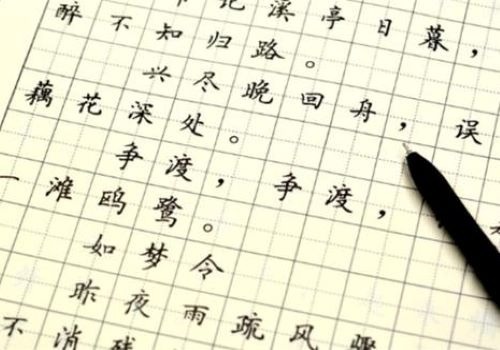 记溪亭日暮，
醉不知归路。
兴尽晚回舟，误
藕花深处。
争渡，争渡，
一滩鸥鹭。
如梦令
昨夜雨疏风骤
不消残